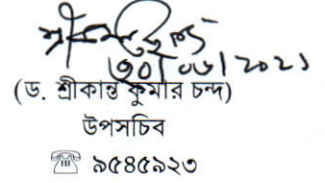 ৩০|০৬|২০২১
(ড. শ্রীকান্ত কুমার চন্দ)
উপসচিব
☎ ৯৫৪৫৯২৩